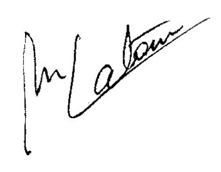 M Latour